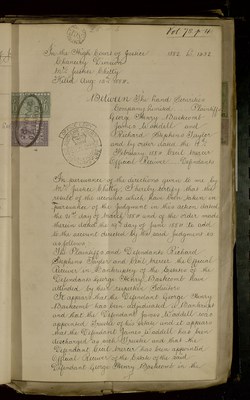 Vol 70 p 4
In the High Court of Justice 1882 L 1032
Chancery Division
Mr Justice Chitty
Filed Aug 12 1884
Between The Land Securities
Company Limited Plaintiffs
George Henry Brockwood
James Waddell and
Richard Hopkins Naylor
and by order dated the
February 1884 Cecil Mercer
Official Receiver Defendants
In pursuance of the directions given to me by
Mr Justice Chitty I hereby certify that the
result of the accounts which have been taken in
pursuance of the judgment in this action dated
the day of March 1884 and of the order made
therein dated the 19th day of June 1884 to add
to the account directed by the said judgment is
as follows
The Plaintiffs and Defendants Richard
Hopkins Naylor and Cecil Mercer the Official
Receiver in Bankruptcy of the Estate of the
Defendant George Henry have
attended by their respective Solicitors
It appears that the Defendant George Henry
has been adjudicated a Bankrupt
and that the Defendant James Waddell was
appointed Trustee of his estate and it appears
that the Defendant James Waddell has been
discharged as such Trustee and that the
Defendant Cecil Mercer has been appointed
Official Receiver of the Estate of the said
Defendant George Henry in the